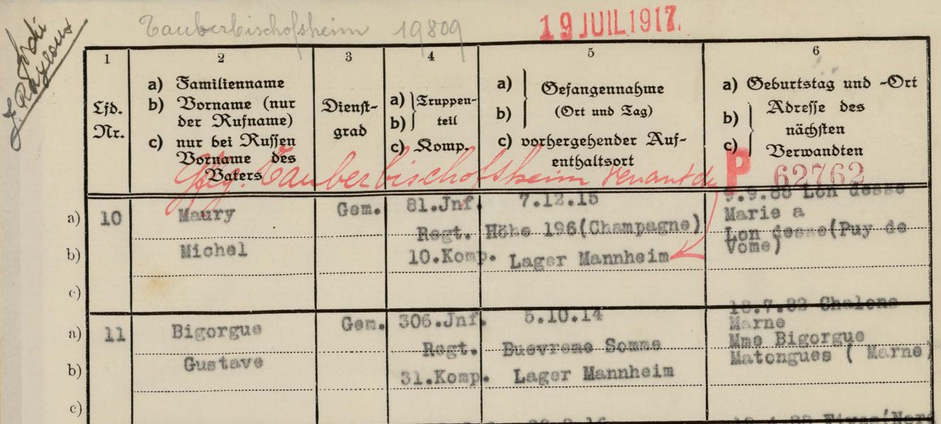 Tauberbischofsheim 19809
19 JUIL. 1917.
1
2
3
4
5
6
Lfd. Nr.
a) Familienname
b) Vorname (nur
der Rufname)
c) nur bei Russen
Vorname des
Vaters
Dienst-
grad
a) Truppen-
b) teil
c) Komp.
a) Gefangennahme
b) (Ort und Tag)
c) vorhergehender Auf-
enthaltsort
a) Geburtstag und -Ort
b) Adresse des
nächsten
c) Verwandten
Gfg. Tauberbischofsheim venant de
P 62762
a) 10 Maury Gem. 81.Jnf. 7.12.15 9.9.88 Lon desse
Regt. Höhe 196(Champagne) Marie a
b) Michel 10.Komp. Lager Mannheim Lon desse(Puy de
Vome)
c)
a) 11 Bigorgue Gem. 306.Jnf. 5.10.14 18.7.82 Chalons
Marne
Regt. Buevreme Somme Mme Bigorgue
b) Gustave 31.Komp. Lager Mannheim Matongues ( Marne)
c)